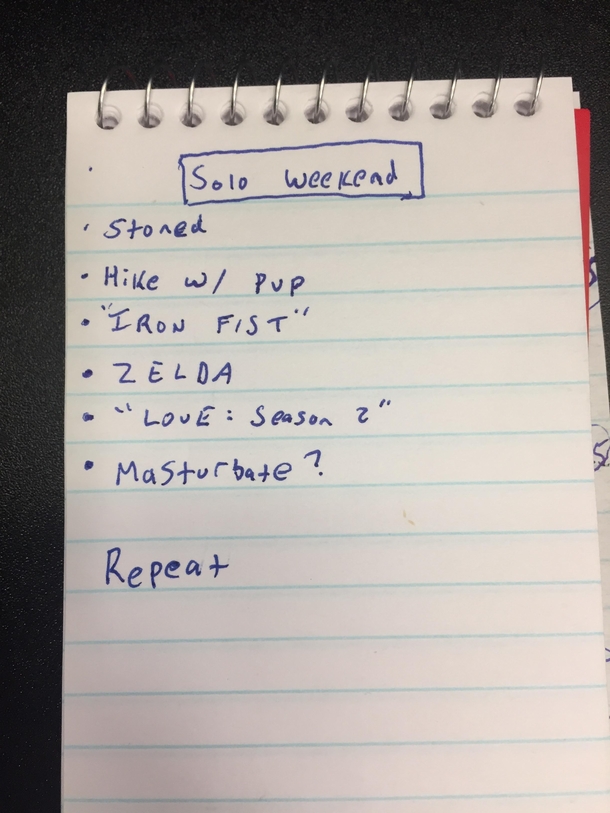 Solo weekend
• Stoned
• Hike w/ pup
• "IRON FIST"
• ZELDA
• "LOVE: Season 2"
• Masturbate?
Repeat